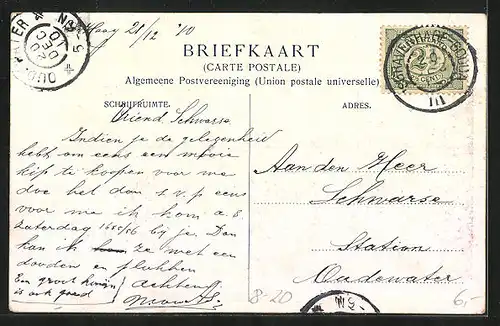 Haag 21/12 '10
BRIEFKAART
(CARTE POSTALE)
Algemeene Postvereeniging (Union postale universelle)
SCHRIJFRUIMTE.
ADRES.
Vriend Schwarse
Indien je de gelegenheid
hebt om eens een mooie
kip te koopen voor me
doe het dan s.v.p eens
voor me ik kom a.s.
Zaterdag 1655/56 bij je. Dan
kan ik ze met een
dooden en plukken
Een groot konijn
is ook goed
achtend
Aan den Heer
Schwarse
Station
Oudewater
8-20
6,
OUDEWATER
DEC
10
'S GRAVENHAGE
III